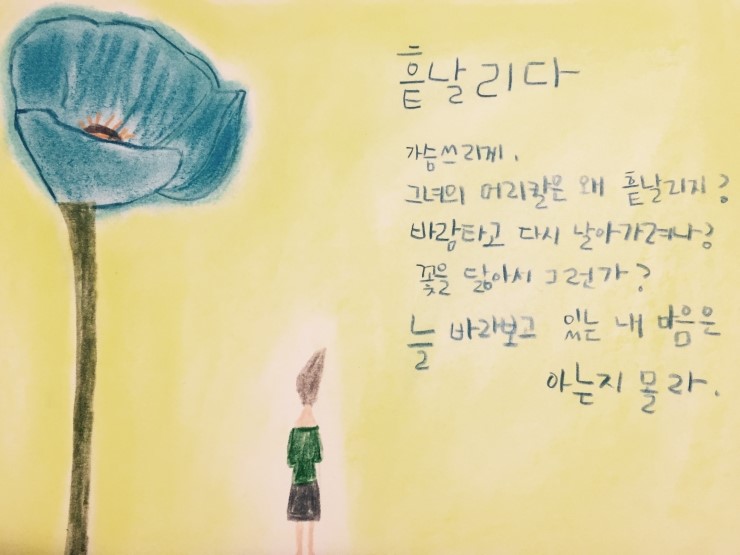 흩날리다
가슴쓰리게.
그녀의 머리칼은 왜 흩날리지?
바람타고 다시 날아가려나?
꽃을 닮아서 그런가?
늘 바라보고 있는 내 마음은
아는지 몰라.